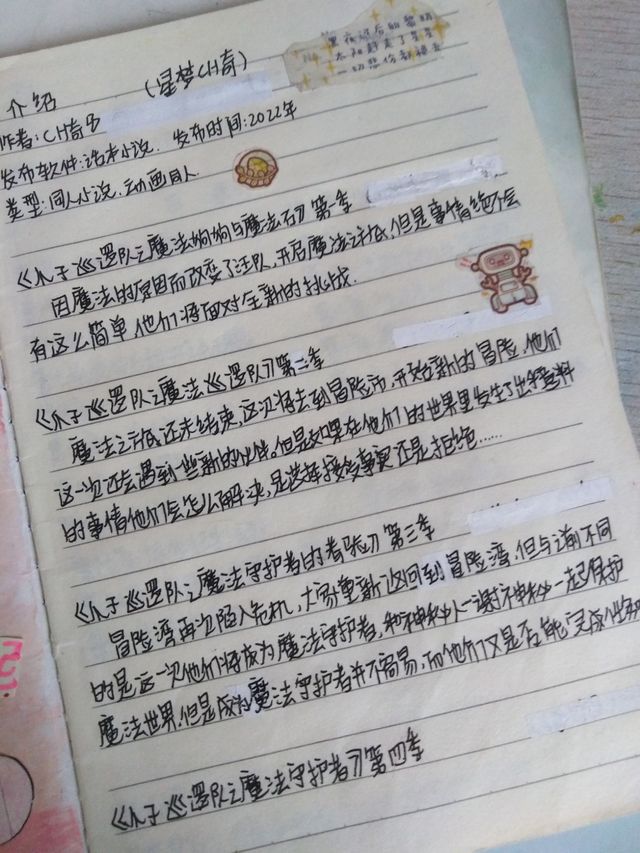 黑夜过后的黎明
太阳赶走了星星
一切悲伤都褪去
介绍 (星梦CH奇)
作者:CH奇
发布软件:话本小说. 发布时间:2022年
类型:同人小说.动画同人
《小子巡逻队之魔法狗狗与魔法石》第一季
因魔法的原因而改变了汪队,开启魔法之旅,但是事情绝不会
有这么简单,他们将面对全新的挑战.
《小子巡逻队之魔法巡逻队》第二季
魔法之旅还未结束,这次将去到冒险市,开始新的冒险,他们
这一次还会遇到一些新的伙伴。但是如果在他们的世界里发生了出乎意料
的事情他们会怎么解决,是选择接受事实还是拒绝……
《小子巡逻队之魔法守护者的考验》第三季
冒险湾再次陷入危机,大家重新返回到冒险湾,但与之前不同
的是这一次他们将成为魔法守护者,和神秘人一起保护
魔法世界,但是成为魔法守护者并不容易,而他们又是否能完成
《小子巡逻队之魔法守护者》第四季